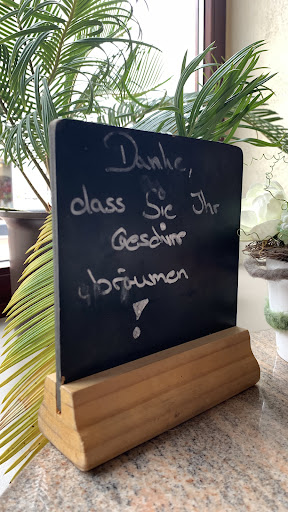 Danke,
dass Sie Ihr
Geschirr
abräumen
!